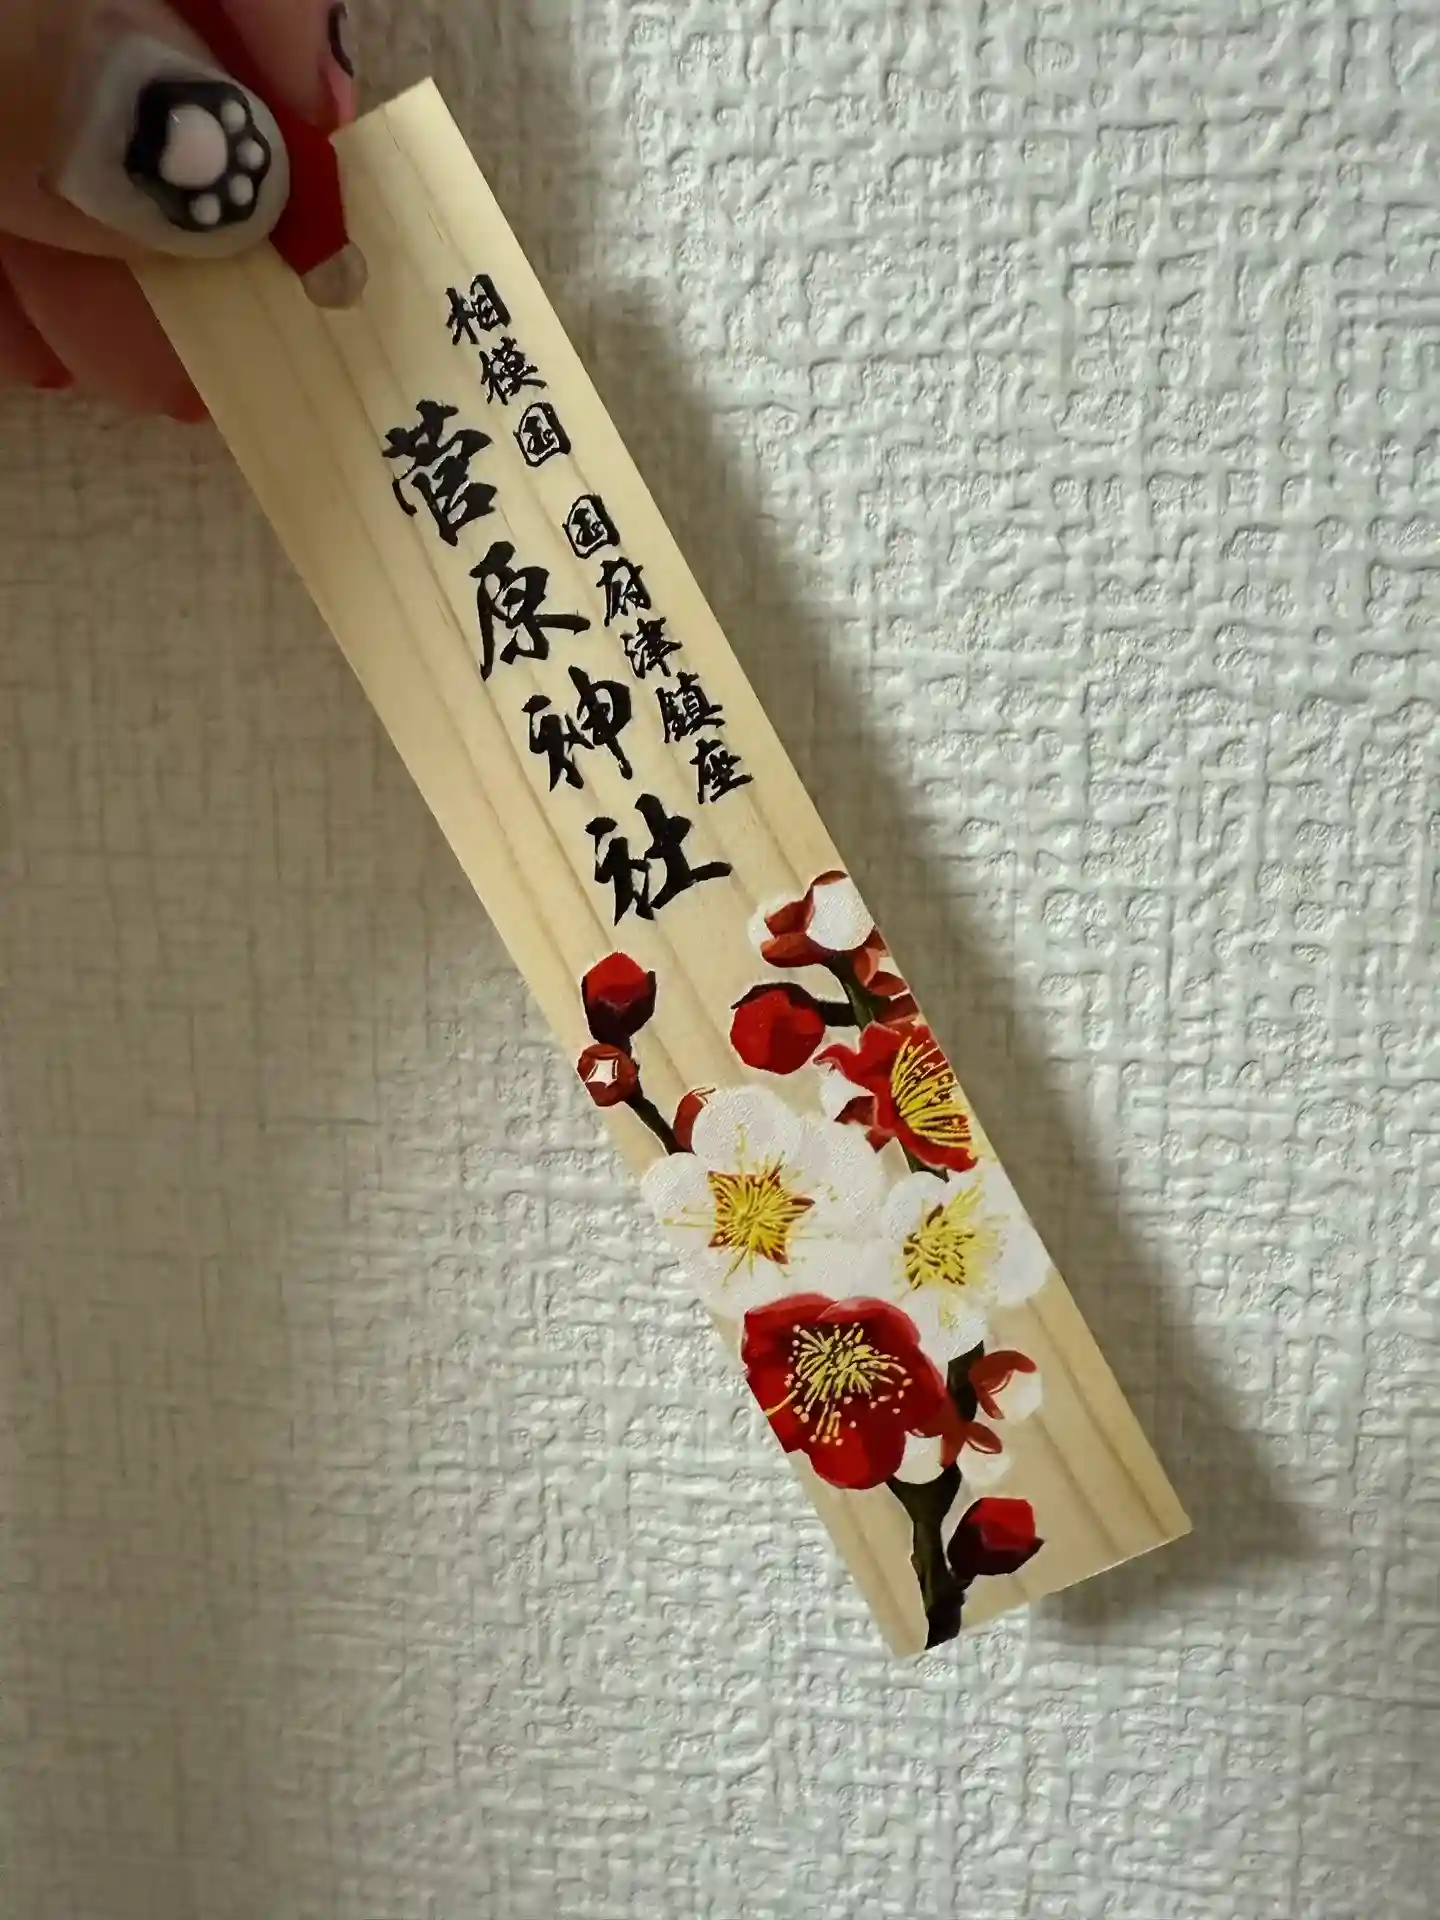 相模国 国府津鎮座
菅原神社